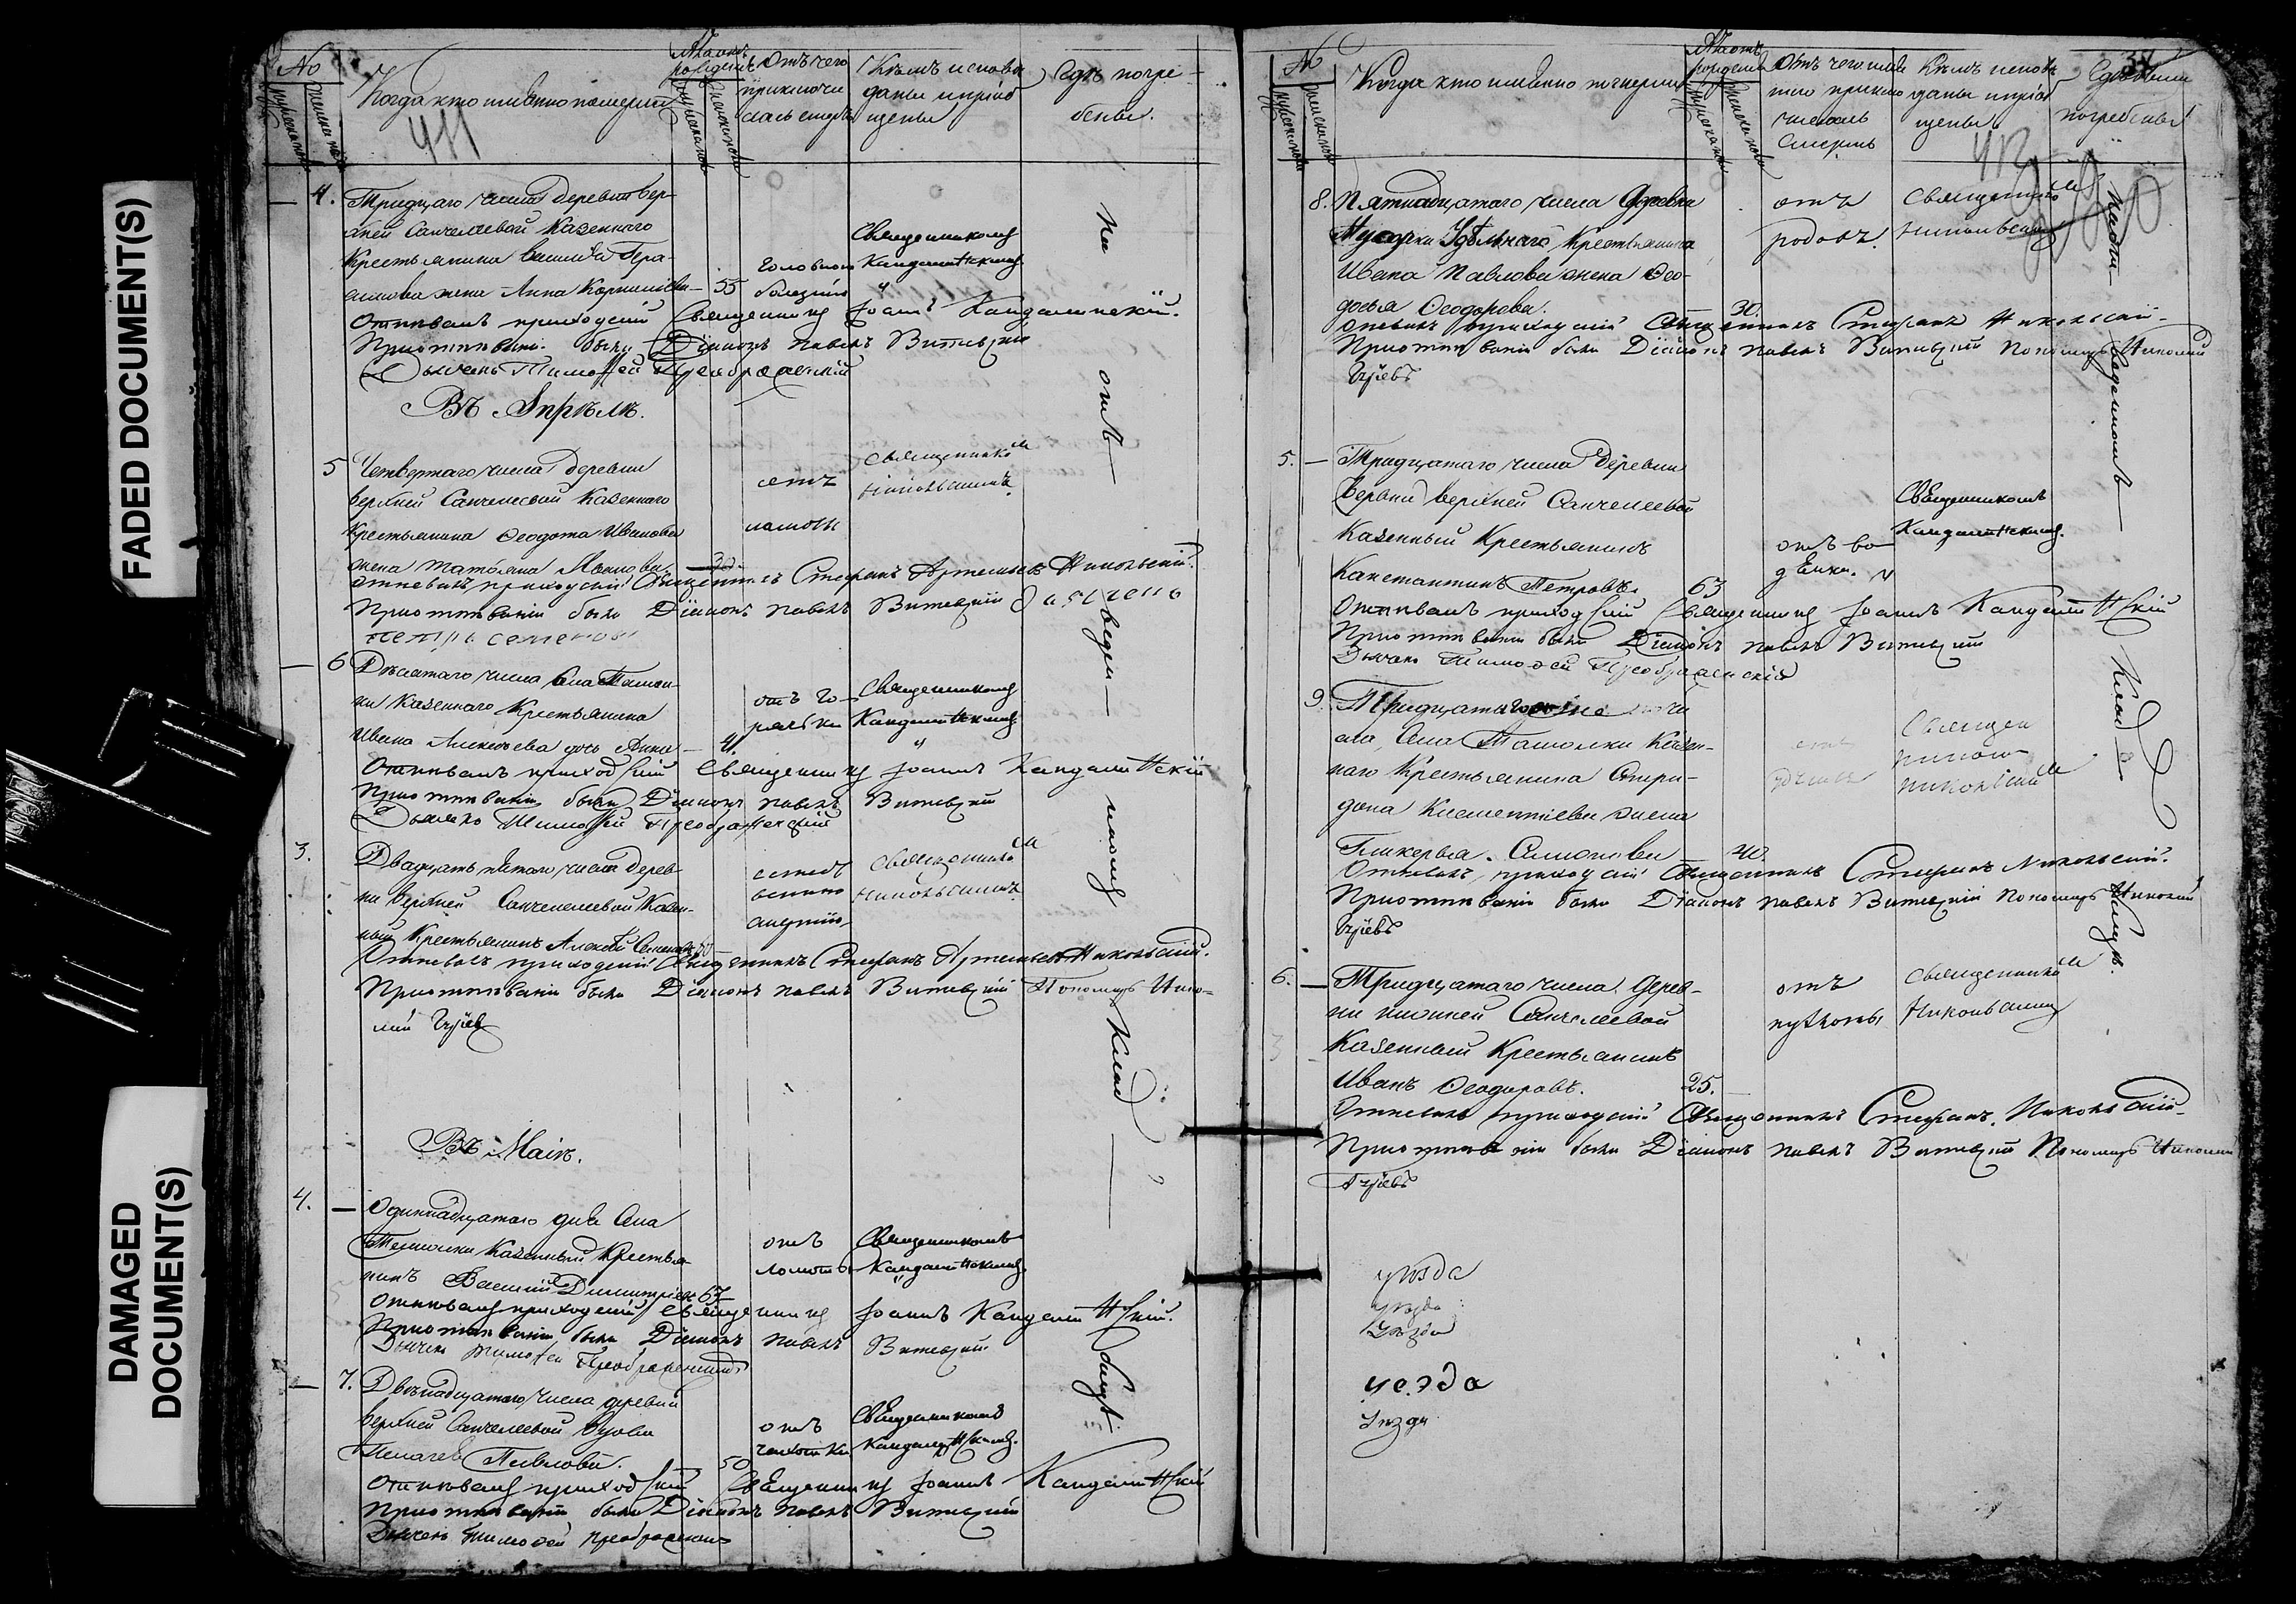 FADED DOCUMENT(S)
DAMAGED
DOCUMENT(S)
No
мужеска
женска
Когда кто имянно померли
411
Лѣта отъ рожденiя
Отъ чего приключилась смерть
Кѣмъ исповѣданы и прiобщены
Гдѣ погребены.
4. Тридцаго числа деревни Вер-
хней Санчелеевой Казеннаго
Крестьянина Василья Гера-
симова жена Анна Корнилiева 55
головной болезнiю
Священникомъ Кандалинскимъ
Отпѣвалъ приходскiй Священникъ Iоаннъ Кандалинскiй.
При отпѣванiи были Дiаконъ Павелъ Витевскiй
Дьячекъ Тимофей Преображенскiй
Въ Апрѣлѣ.
5 Четвертаго числа деревни
верхней Санчелеевой Казеннаго
Крестьянина Ѳеодота Иванова
жена Татьяна 30
отъ ломоты
Священникомъ Никольскимъ
Отпевалъ приходскiй Священникъ Стефанъ Артемьевъ Никольскiй.
При отпѣванiи были Дiаконъ Павелъ Витевскiй
Петръ Семеновъ
6 Десятаго числа села Ташол-
ки Казеннаго Крестьянина
Ивана Алексѣева дочь Анна 4.
отъ горячки
Священникомъ Кандалинскимъ
Отпѣвалъ приходскiй Священникъ Iоаннъ Кандалинскiй
При отпѣванiи были Дiаконъ Павелъ Витевскiй
Дьячекъ Тимофей Преображенскiй
3. Двадцать пятаго числа дерев-
ни Верхней Санчелеевой Казен-
ный Крестьянинъ Алексѣй Семеновъ
Священникомъ Никольскимъ
Отпевалъ приходскiй Священникъ Стефанъ Артемьевъ Никольскiй.
При отпѣванiи были Дiаконъ Павелъ Витевскiй Пономарь Нико-
лай
Въ Маiѣ.
4. Одиннадцатаго дня села
Ташолки Казенный Крестья-
нинъ Василiй Димитрiевъ 67
отъ ломоты
Священникомъ Кандалинскимъ
Отпѣвалъ приходскiй Священникъ Iоаннъ Кандалинскiй.
При отпѣванiи были Дiаконъ Павелъ Витевскiй
Дьячекъ Тимофей Преображенскiй
7. Двѣнадцатаго числа деревни
верхней Санчелеевой вдова
Пелагея Павлова. 50
отъ чахотки
Священникомъ Кандалинскимъ.
Отпѣвалъ приходскiй Священникъ Iоаннъ Кандалинскiй
При отпѣванiи были Дiаконъ Павелъ Витевскiй
Дьячекъ Тимофей Преображенскiй
На отведенномъ Кладбищѣ.
No
мужеска
женска
Когда кто имянно померли
Лѣта отъ рожденiя
Отъ чего
приключилась
Смерть
Кѣмъ исповѣданы и прiобщены
Гдѣ
погребены
412
8. Пятнадцатаго числа деревни
Мусорки Удѣльнаго Крестьянина
Ивана Павлова жена Ѳео-
досья Ѳеодорова. 30.
отъ родовъ.
Священникомъ Никольскимъ
Отпевалъ приходскiй Священникъ Стефанъ Никольскiй
При отпѣванiи были Дiаконъ Павелъ Витевскiй Пономарь Николай
5. Тридцатаго числа деревни
верхней Санчелеевой
Казенный Крестьянинъ
Константинъ Петровъ 63
отъ водянки.
Священникомъ Кандалинскимъ.
Отпѣвалъ приходскiй Священникъ Iоаннъ Кандалинскiй
При отпѣванiи были Дiаконъ Павелъ Витевскiй
Дьячекъ Тимоѳей Преображенскiй
9. Тридцатаго чи-
сла, села Ташолки Казен-
наго Крестьянина Спири-
дона Климентiева жена
Гликерья Симонова 40.
Священникомъ Никольскимъ
Отпевалъ приходскiй Священникъ Стефанъ Никольскiй.
При отпѣванiи были Дiаконъ Павелъ Витевскiй Пономарь Николай
6. Тридцатаго числа дерев-
ни нижней Санчелеевой
Казенный Крестьянинъ
Иванъ Ѳеодоровъ. 25.
отъ
Священникомъ Никольскимъ
Отпевалъ приходскiй Священникъ Стефанъ Никольскiй
При отпѣванiи были Дiаконъ Павелъ Витевскiй Пономарь Николай
уѣзда
уѣзда
Уѣзда
уезда
Уѣзда